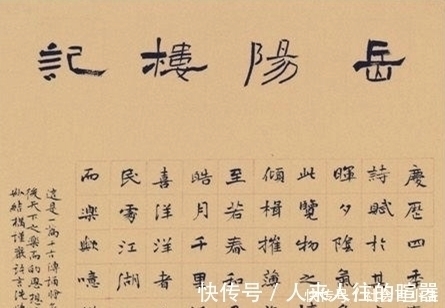 岳陽樓記
慶歷四年
詩賦於其
暉夕陰氣
此覽物之
傾楫摧薄
至若春和
皓月千里
喜洋洋者
民處江湖
而樂歟噫
這是一篇千古傳
後天下之樂而的思想
結構謹嚴
快传号 / 人来人往的暄器